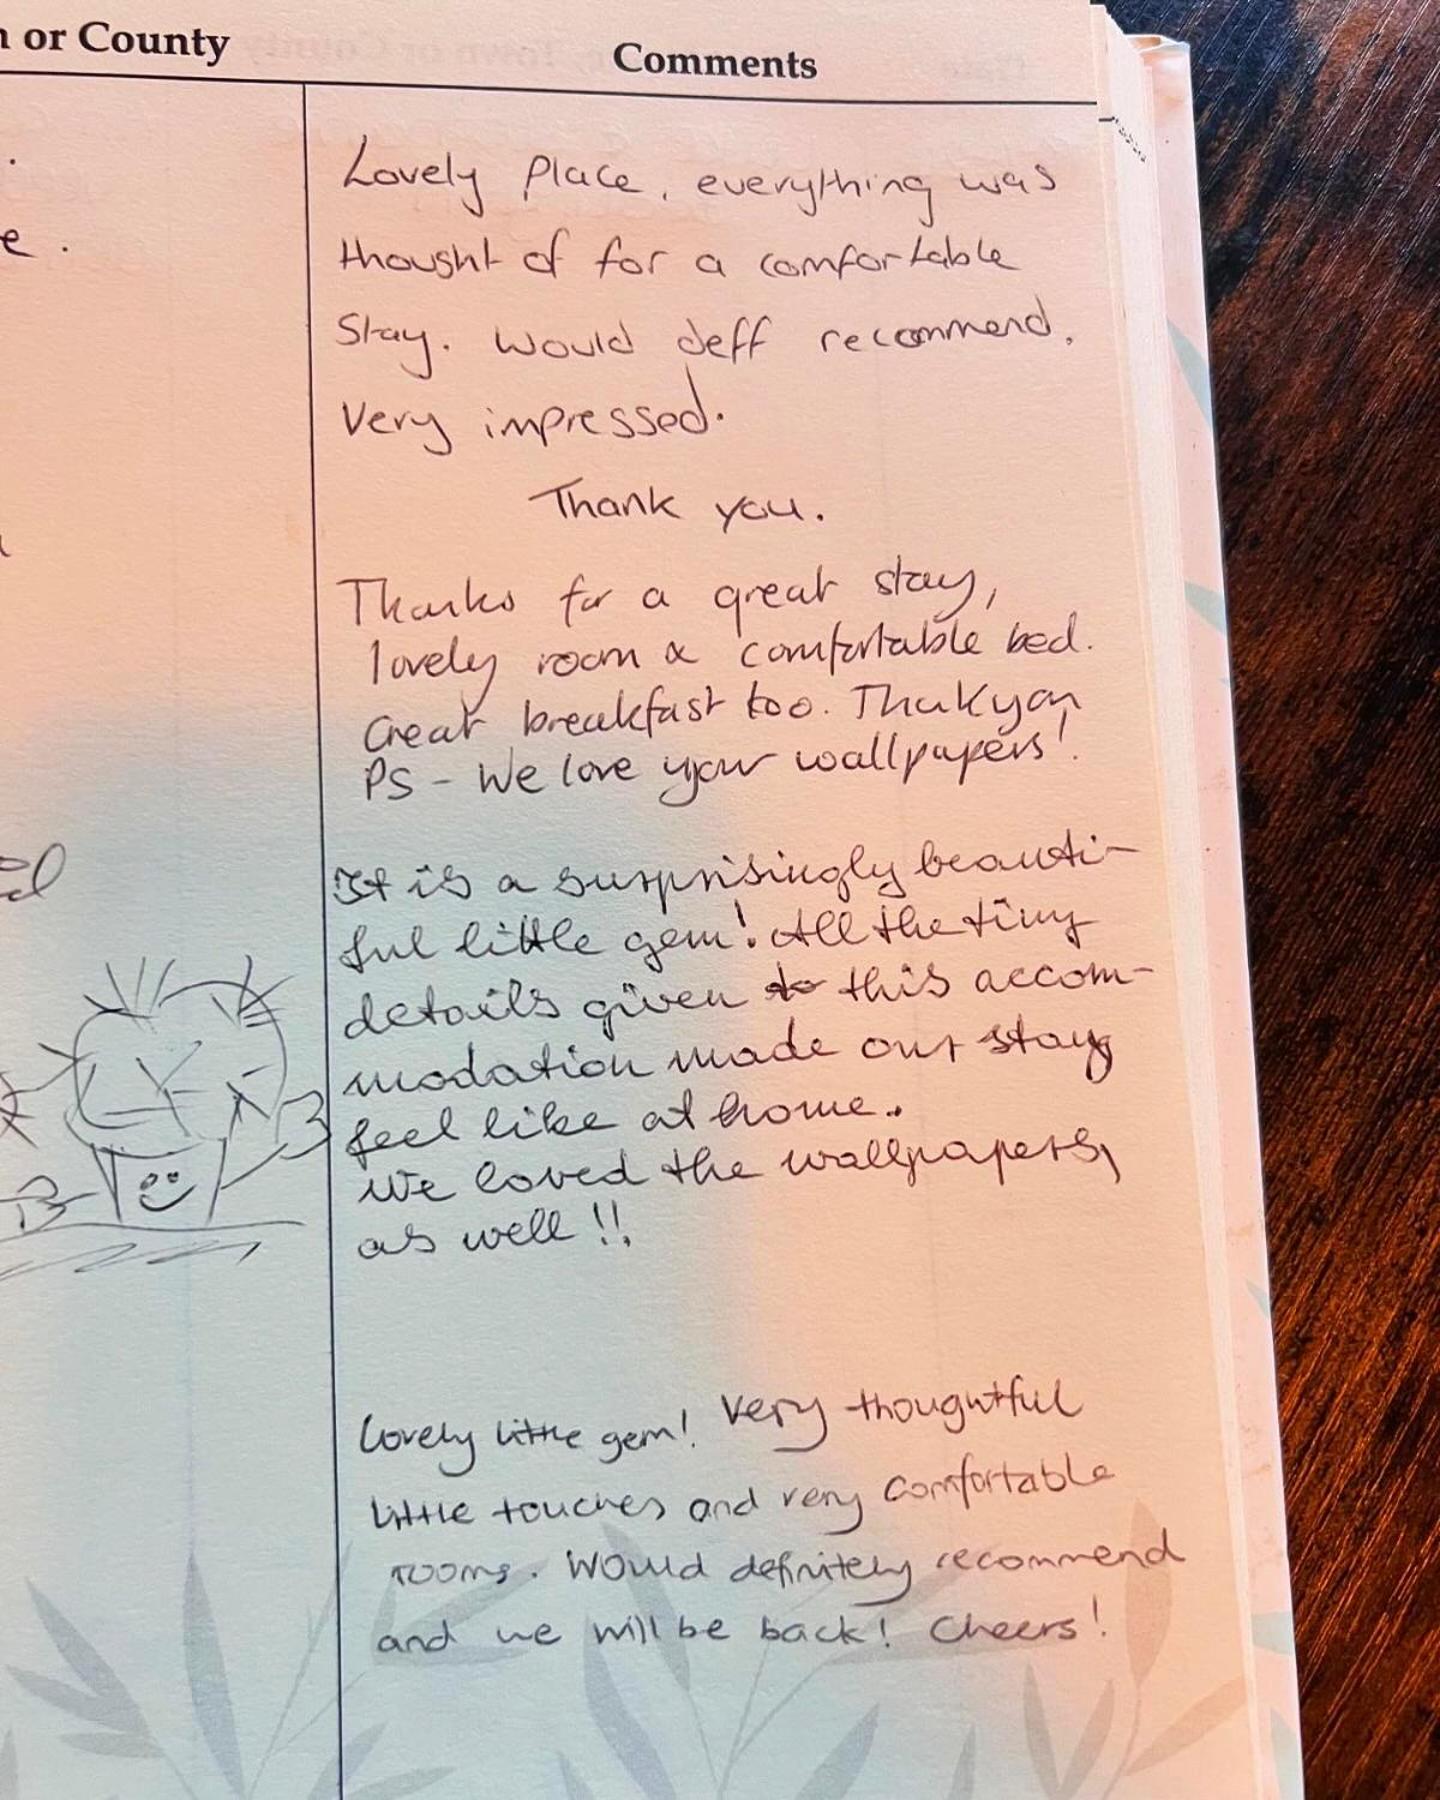 n or County
Comments
Lovely Place, everything was
thought of for a comfortable
Stay. Would deff recommend.
Very impressed.
Thank you.
Thanks for a great stay,
lovely room & comfortable bed.
Great breakfast too. Thank you
PS - We love your wallpapers!
It is a surprisingly beauti-
ful little gem! All the tiny
details given to this accom-
modation made our stay
feel like at home.
We loved the wallpapers,
as well!!
Lovely little gem! Very thoughtful
little touches and very comfortable
rooms. Would definitely recommend
and we will be back! Cheers!